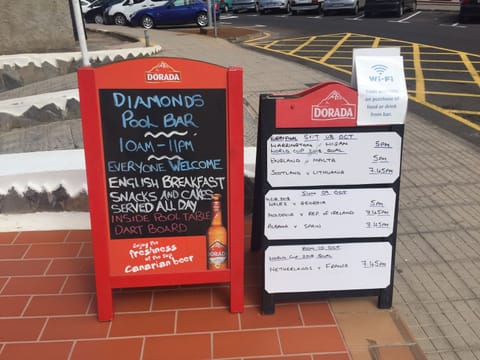 DORADA
DIAMONDS
POOL BAR
10AM-11PM
EVERYONE WELCOME
ENGLISH BREAKFAST
SNACKS AND CAKES
SERVED ALL DAY
INSIDE POOL TABLE
DART BOARD
Enjoy the
freshness
of the top
Canarian beer
DORADA
DORADA
Wi-Fi
on purchase of
food or drink
from bar.
SAT 08 OCT
WARRINGTON v WIGAN 5PM
WORLD CUP 2018 QUAL
ENGLAND v MALTA 5PM
SCOTLAND v LITHUANIA 7.45PM
SUN 09 OCT
W.C.Q 2018
WALES v GEORGIA 5PM
MOLDOVA v REP OF IRELAND 7.45PM
ALBANIA v SPAIN 7.45PM
MON 10 OCT
WORLD CUP 2018 QUAL
NETHERLANDS v FRANCE 7.45PM